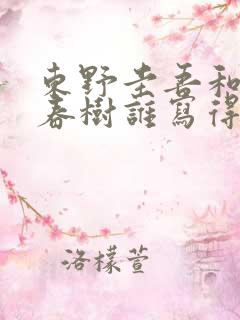 東野圭吾和
春樹誰寫得
洛檬萱